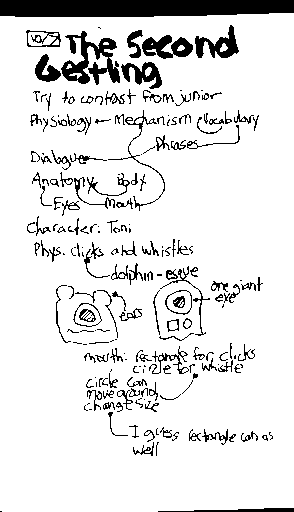 10/7 The Second
Gestling
Try to contast from junior
Physiology Mechanism Vocabulary
Phrases
Dialogue
Anatomy Body
Eyes Mouth
Character: Toni
Phys. clicks and whistles
dolphin-esque
one giant
eye
ears
mouth: rectangle for clicks
circle for whistle
circle can
move around,
change size
I guess rectangle can as
well